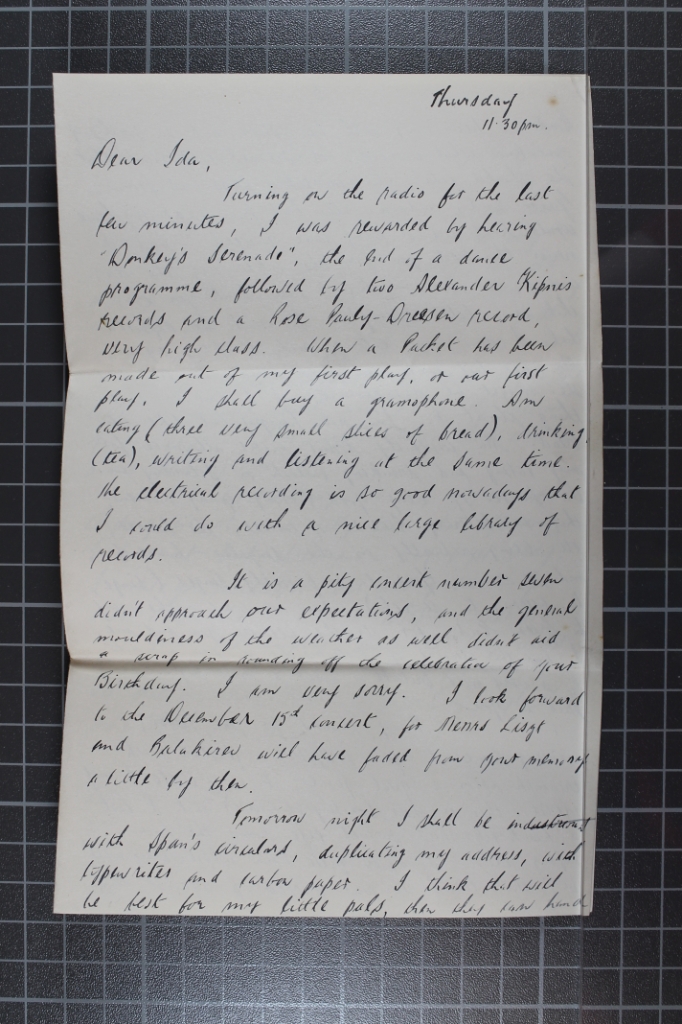 Thursday
11.30pm.
Dear Ida,
Turning on the radio for the last
few minutes, I was rewarded by hearing
"Donkey's Serenade", the end of a dance
programme, followed by two Alexander Kipnis
records and a Rose Pauly-Dreesen record,
very high class. When a Packet has been
made out of my first play, or our first
play, I shall buy a gramophone. Am
eating (three very small slices of bread), drinking
(tea), writing and listening at the same time.
The electrical recording is so good nowadays that
I could do with a nice large library of
records.
It is a pity concert number seven
didn't approach our expectations, and the general
mouldiness of the weather as well didn't aid
a scrap in rounding off the celebration of your
Birthday. I am very sorry. I look forward
to the December 15th concert, for Messrs Liszt
and Balakirev will have faded from your memory
a little by then.
Tomorrow night I shall be industrious
with Spain's circulars, duplicating my address, with
typewriter and carbon paper. I think that will
be best for my little pals, then they can hand